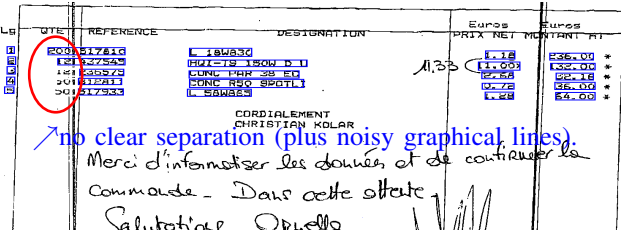 Euros Euros
Lg QTE REFERENCE DESIGNATION PRIX NET MONTANT HT
1 200 517810 L 18W830 1.18 236.00 *
2 12 HQI-TS 150W D L 11.33 (1.00) 132.00 *
3 12 236579 CONC PAR 38 EQ 2.68 32.18 *
4 50 CONC R50 SPOTLI 0.72 36.00 *
5 50 517933 L 58W865 1.28 64.00 *
CORDIALEMENT
CHRISTIAN KOLAR
no clear separation (plus noisy graphical lines).
Merci d'informatiser les données et de continuer la
commande. Dans cette attente.
Salutations